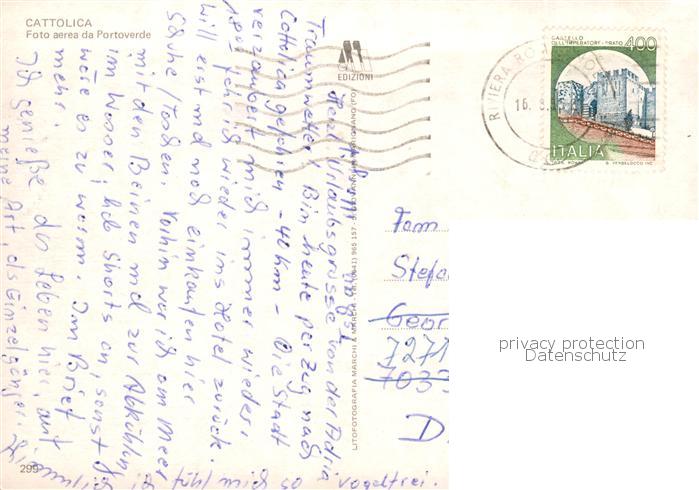 CATTOLICA
Foto aerea da Portoverde
M
EDIZIONI
CASTELLO
DELL'IMPERATORE - PRATO 400
ITALIA
RIVIERA
16. 8.
LITOFOTOGRAFIA MARCHI & MARCHI
Herzl. Urlaubsgrüsse von der Adria
Traumwetter. Bin heute per Zug nach
Cattolica gefahren - 40 km - Die Stadt
verzaubert mich immer wieder.
fahr ich wieder ins Hotel zurück.
will erst noch einkaufen hier
Schuhe / Taschen. Vorhin war ich am Meer
mit den Beinen mal zur Abkühlung
im Wasser, hab Shorts an sonst
wäre es zu warm. Im Brief
mehr.
Ich genieße das Leben hier, auf
meine Art, als Einzelgänger.
fühl mich so vogelfrei.
Fam
Stefa
Geor
7271
703
D
privacy protection
Datenschutz
299